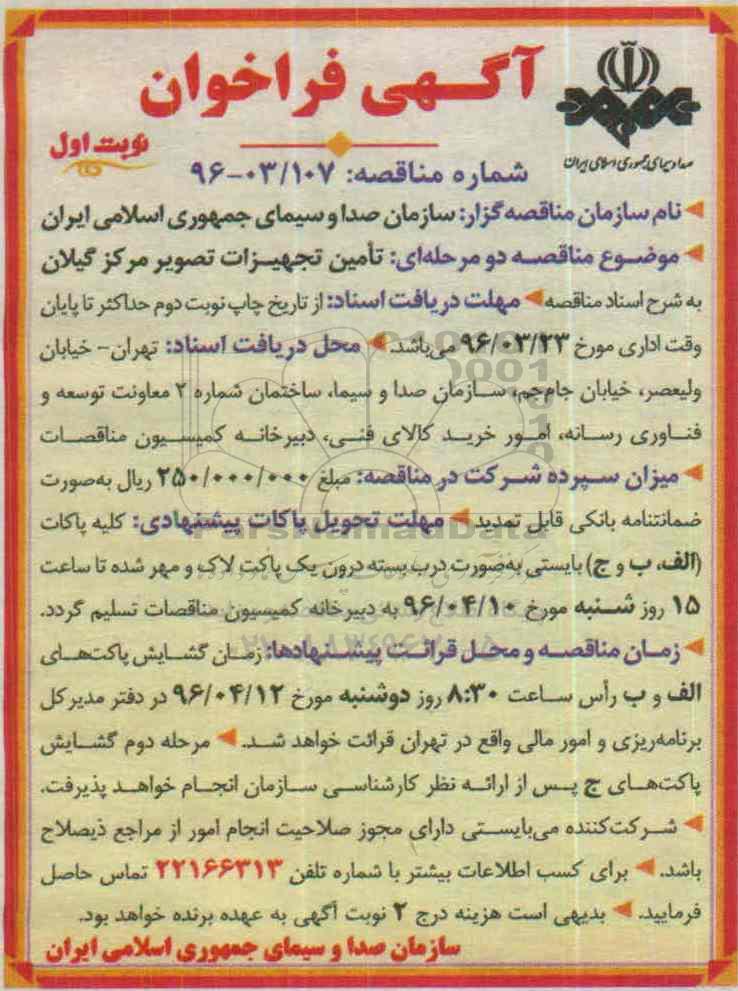 آگهی فراخوان
صدا و سیمای جمهوری اسلامی ایران
نوبت اول
شماره مناقصه: ۹۶-۰۳/۱۰۷
نام سازمان مناقصه‌گزار: سازمان صدا و سیمای جمهوری اسلامی ایران
موضوع مناقصه دو مرحله‌ای: تأمین تجهیزات تصویر مرکز گیلان
به شرح اسناد مناقصه مهلت دریافت اسناد: از تاریخ چاپ نوبت دوم حداکثر تا پایان
وقت اداری مورخ ۹۶/۰۳/۲۳ می‌باشد. محل دریافت اسناد: تهران- خیابان
ولیعصر، خیابان جام‌جم، سازمان صدا و سیما، ساختمان شماره ۲ معاونت توسعه و
فناوری رسانه، امور خرید کالای فنی، دبیرخانه کمیسیون مناقصات
میزان سپرده شرکت در مناقصه: مبلغ ۲۵۰/۰۰۰/۰۰۰ ریال به‌صورت
ضمانتنامه بانکی قابل تمدید مهلت تحویل پاکات پیشنهادی: کلیه پاکات
(الف، ب و ج) بایستی به‌صورت درب بسته درون یک پاکت لاک و مهر شده تا ساعت
۱۵ روز شنبه مورخ ۹۶/۰۴/۱۰ به دبیرخانه کمیسیون مناقصات تسلیم گردد.
زمان مناقصه و محل قرائت پیشنهادها: زمان گشایش پاکت‌های
الف و ب رأس ساعت ۸:۳۰ روز دوشنبه مورخ ۹۶/۰۴/۱۲ در دفتر مدیر کل
برنامه‌ریزی و امور مالی واقع در تهران قرائت خواهد شد. مرحله دوم گشایش
پاکت‌های ج پس از ارائه نظر کارشناسی سازمان انجام خواهد پذیرفت.
شرکت‌کننده می‌بایستی دارای مجوز صلاحیت انجام امور از مراجع ذیصلاح
باشد. برای کسب اطلاعات بیشتر با شماره تلفن ۲۲۱۶۶۳۱۳ تماس حاصل
فرمایید. بدیهی است هزینه درج ۲ نوبت آگهی به عهده برنده خواهد بود.
سازمان صدا و سیمای جمهوری اسلامی ایران
ParsNamadData